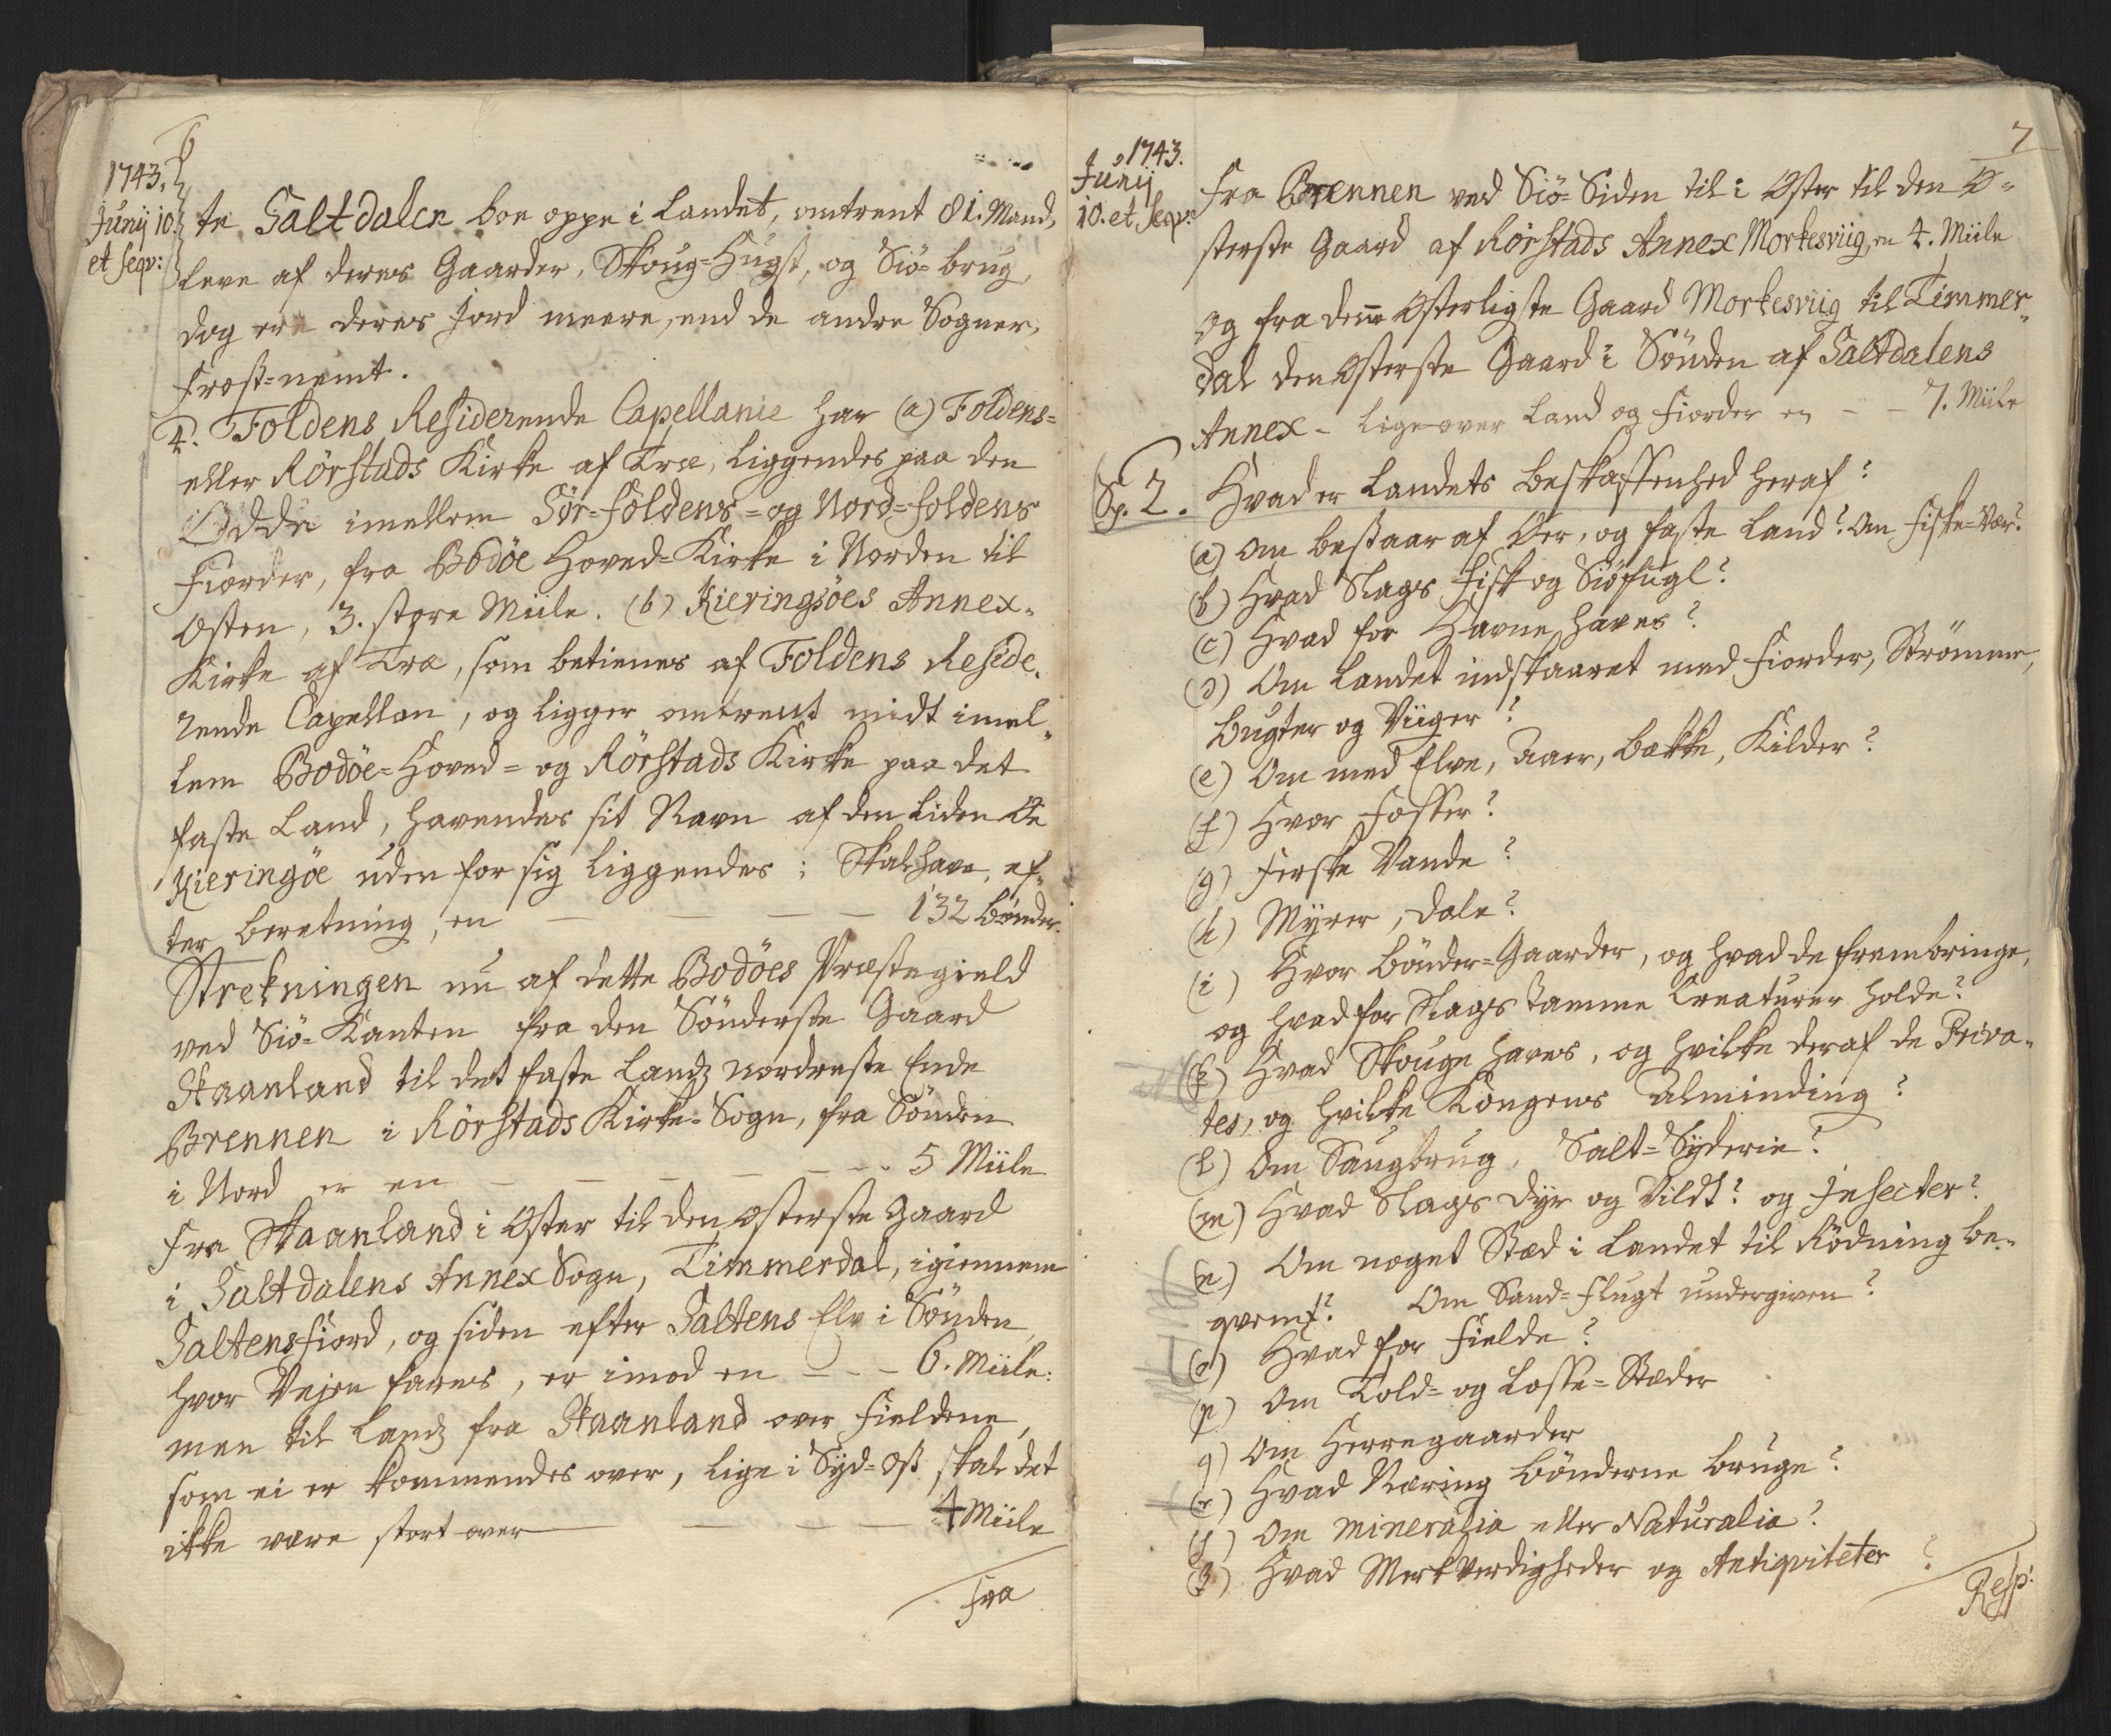 6
1743.
Junij 10.
et seqv:
te Saltdalen boe oppe i Landet, omtrent 81. Mand,
leve af deres Gaarder, Skoug-Hugst, og Siö-brug,
dog ere deres Jord meere, end de andre Sogner,
frost-nemt.
4. Foldens Residerende Capellanie har (a) Foldens-
eller Rörstads Kirke af Træ, liggendes paa den
Odde imellem Sör-foldens- og Nord-foldens
Fiorder, fra Bodöe Hoved-Kirke i Norden til
Osten, 3. store Miile. (b) Kieringöes Annex-
Kirke af Træ, som betienes af Foldens Reside-
rende Capellan, og ligger omtrent midt imel-
lem Bodöe-Hoved- og Rörstads Kirke paa det
faste Land, havendes sit Navn af den liden Öe
Kieringöe uden for sig liggendes: Skal have, ef-
ter beretning, en — — — — 132 bönder.
Strekningen nu af dette Bodöes Præstegield
ved Siö-Kanten fra den Sönderste Gaard
Skaanland til det faste Landz nordreste Ende
Brennen i Rörstads Kirke-Sogn, fra Sönden
i Nord er en — — — — — 5 Miile
Fra Skaanland i Oster til den osterste Gaard
i Saltdalens Annex Sogn, Timmerdal, igiennem
Saltensfiord, og siden efter Saltens Elv i Sönden,
hvor Vejen fares, er imod en — — — 6. Miile:
men til Landz fra Skaanland over Fieldene,
som ei er kommendes over, lige i Syd-Ost, skal det
ikke være stort over — — — — 4 Miile
Fra
7
1743.
Junij
10. et seqv:
Fra Brennen ved Siö-Siden til i Oster til den Ö-
sterste Gaard af Rörstads Annex Morkesviig, en 4. Miile
og fra denne Osterligste Gaard Morkesviig til Timmer-
dal den Osterste Gaard i Sönden af Saltdalens
Annex - lige over Land og Fiorder en — — 7. Miile
Sp. 2. Hvad er Landets Beskaffenhed heraf?
(a) Om bestaar af Öer, og faste Land? Om Fiske-Vær?
(b) Hvad Slags Fisk og Siöfugl?
(c) Hvad for Havne haves?
(d) Om Landet indskaaret med Fiorder, Strömme,
Bugter og Viiger?
(e) Om med Elve, Aaer, Bække, Kilder?
(f) Hvor Fosser?
(g) Ferske Vande?
(h) Myrer, Dale?
(i) Hvor Bönder-Gaarder, og hvad de frembringe,
og hvad for Slags tamme Creaturer holde?
(k) Hvad Skouge haves, og hvilke deraf de Priva-
tes, og hvilke Kongens Alminding?
(l) Om Saugbrug, Salt-Syderie?
(m) Hvad Slags Dyr og Vildt? og Insecter?
(n) Om noget Stæd i Landet til Rödning be-
qvemt? Om Sand-Flugt undergiven?
(o) Hvad for Fielde?
(p) Om Told- og Losse-Stæder
q) Om Herregaarder
(r) Hvad Næring Bönderne bruge?
(s) Om Mineralia eller Naturalia?
(z) Hvad Merkverdigheder og Antiqviteter?
Resp: